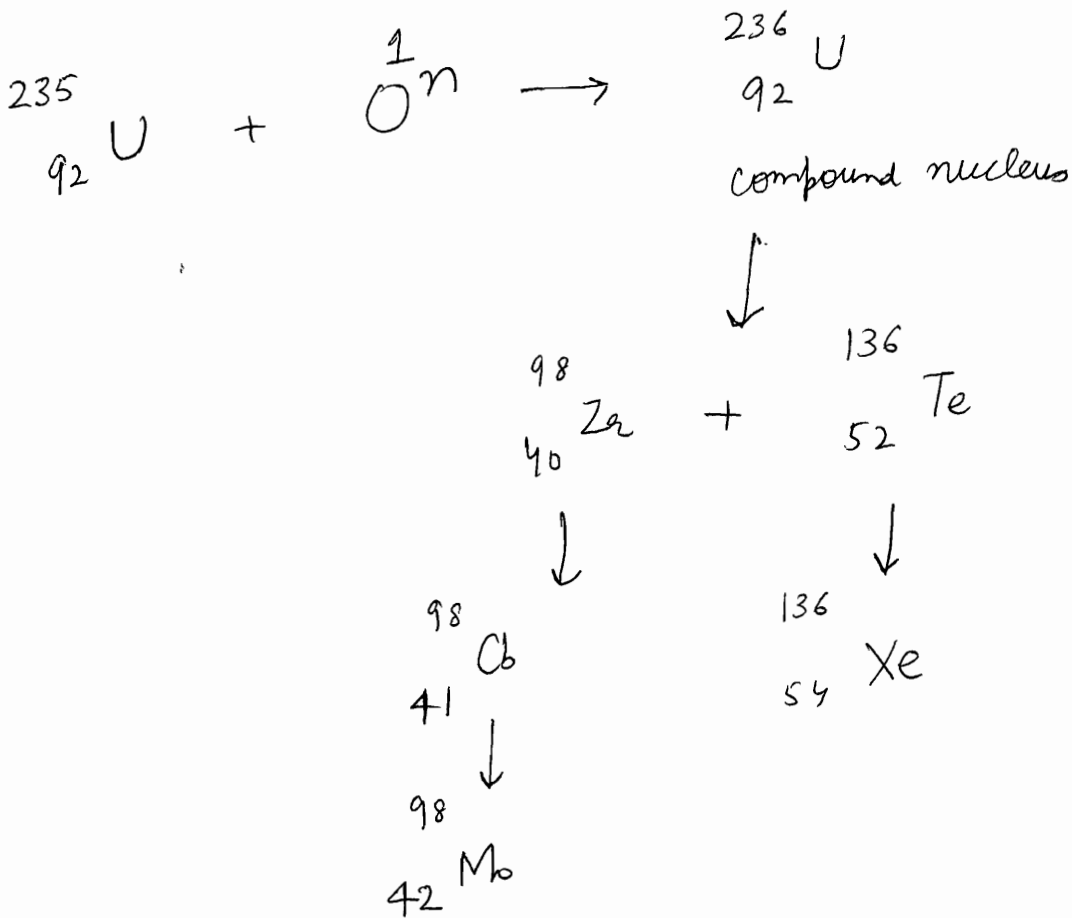 235 92 U + 1 0 n → 236 92 U
compound nucleus
↓
98 40 Zr + 136 52 Te
↓ ↓
98 41 Cb 136 54 Xe
↓
98 42 Mo